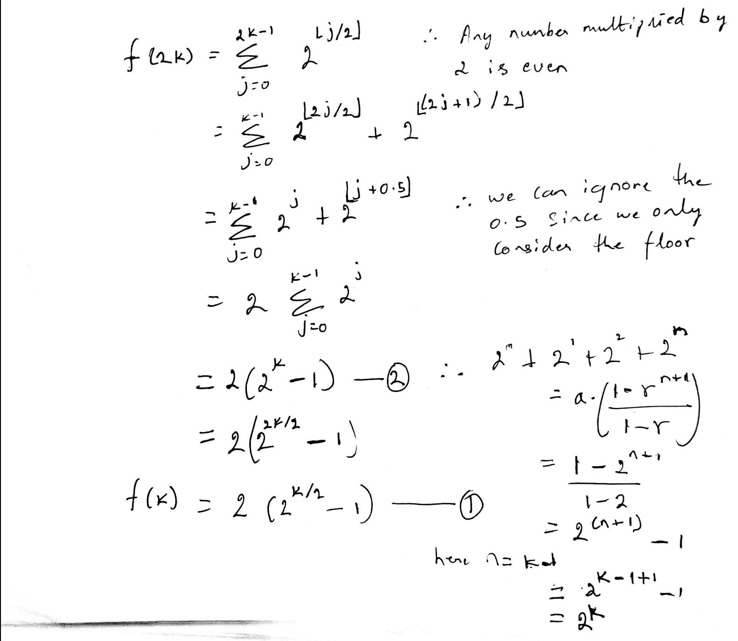 f(2k) = \sum_{j=0}^{2k-1} 2^{⌊j/2⌋} ∴ Any number multiplied by
2 is even
= \sum_{j=0}^{k-1} 2^{⌊2j/2⌋} + 2^{⌊(2j+1)/2⌋}
= \sum_{j=0}^{k-1} 2^{j} + 2^{⌊j+0.5⌋} ∴ we can ignore the
0.5 since we only
consider the floor
= 2 \sum_{j=0}^{k-1} 2^{j}
= 2(2^{k} - 1) — ②
= 2(2^{2k/2} - 1)
f(k) = 2 (2^{k/2} - 1) — ①
∴ 2^{n} + 2^{1} + 2^{2} + 2^{n}
= a. ((1 - r^{n+1}) / (1 - r))
= (1 - 2^{n+1}) / (1 - 2)
= 2^{(n+1)} - 1
here n = k-1
= 2^{k-1+1} - 1
= 2^{k}